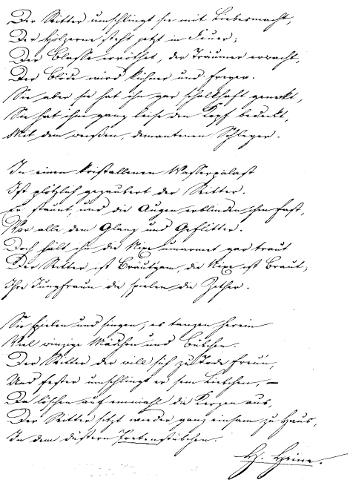 Der Ritter umschlingt sie mit Liebesmacht,
Der Hölzerne steht jetzt in Feuer;
Der Blasse erröthet, der Träumer erwacht,
Der Blöde wird kühner und freyer.
Sie aber sie hat ihn gar schalkhaft geneckt,
Sie hat ihm ganz leise den Kopf bedeckt
Mit dem weißen, demantenen Schleyer.
In einen kristallenen Wasserpalast
Ist plötzlich gezaubert der Ritter.
Er staunt, und die Augen erblinden ihm fast,
Vor alle dem Glanz und Geflitter.
Doch hält ihn die Nixe umarmet gar traut
Der Ritter ist Bräutgam, die Nixe ist Braut,
Ihre Jungfraun die spielen die Zither.
Sie spielen und singen, es tanzen herein
Viel winzige Mädchen und Bübchen.
Der Ritter der will sich zu Tode freun,
Und fester umschlingt er sein Liebchen, –
Da löschen auf einmahl die Kerzen aus,
Der Ritter sitzt wieder ganz einsam zu Haus,
In dem düstern Poetenstübchen.
H. Heine.